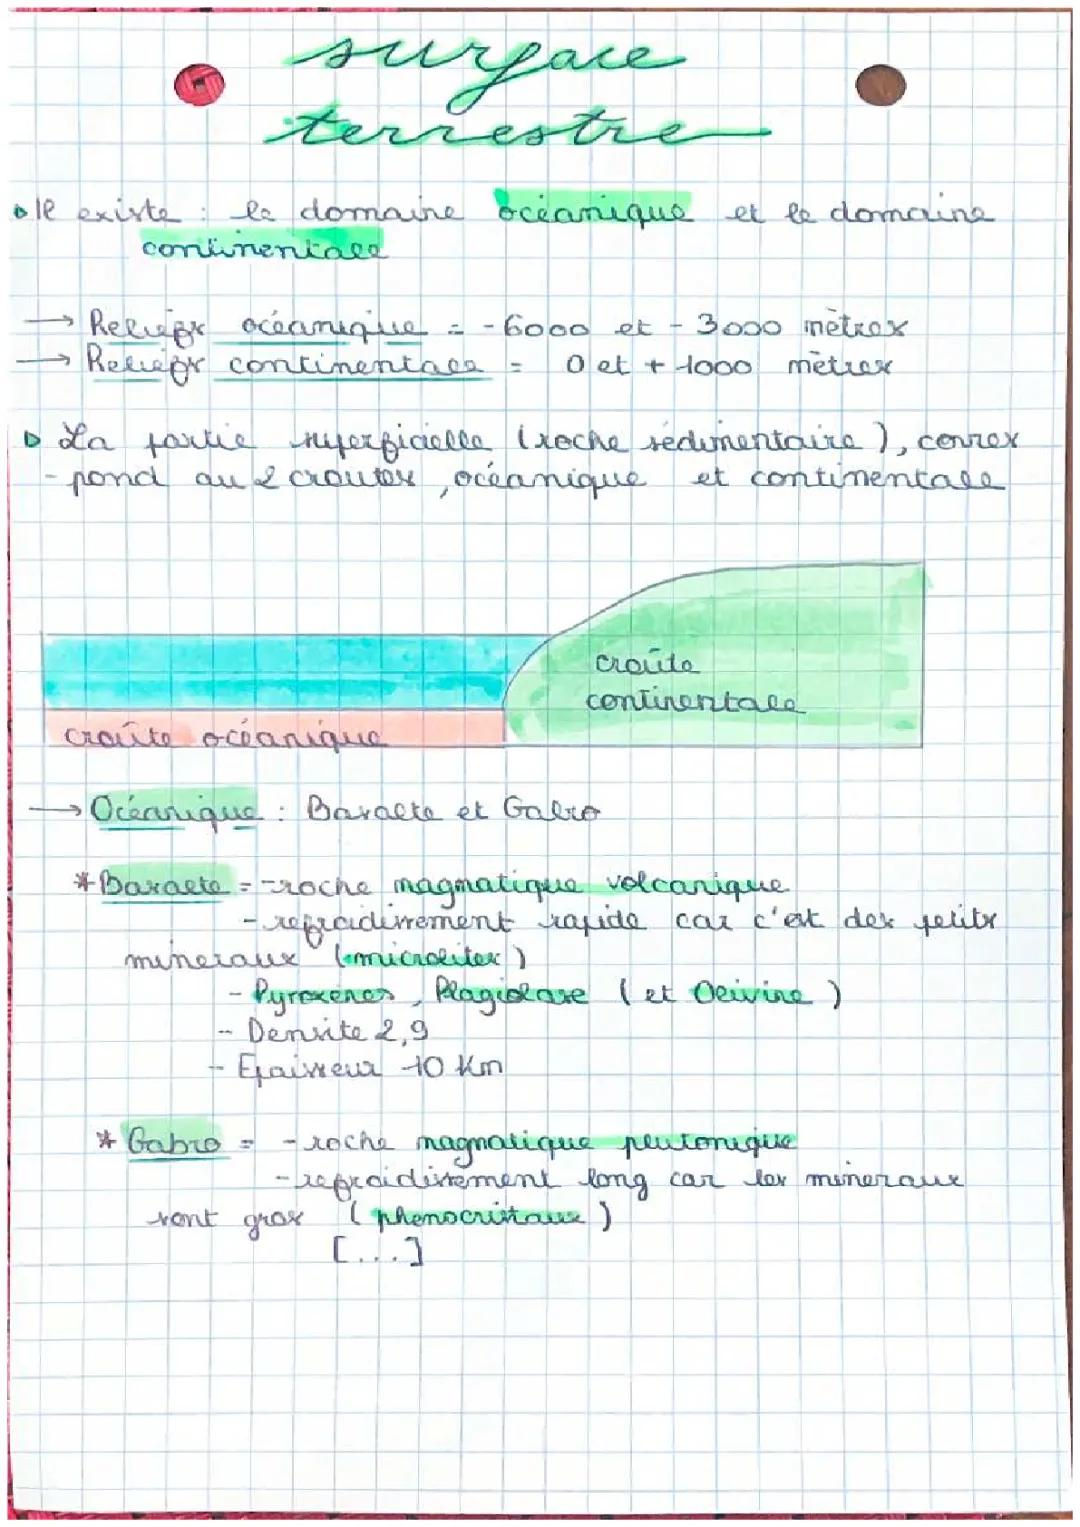 surface
terrestre
Il existe : le domaine océanique et le domaine
continentale
→ Reliefs océanique = -6000 et -3000 mètres
→ Reliefs continentale = 0 et +1000 mètres
La partie superficielle (roche sédimentaire), corres
-pond au 2 croutes, océanique et continentale
croûte
continentale
croûte océanique
→ Océanique : Basalte et Gabro
* Basalte = - roche magmatique volcanique
- refroidissement rapide car c'est des petits
mineraux (microlites)
- Pyroxenes, Plagiolase (et Olivine)
- Densite 2,9
- Epaisseur 10 Km
* Gabro = - roche magmatique plutonique
- refroidissement long car les mineraux
sont gros (phenocristaux)
[...]